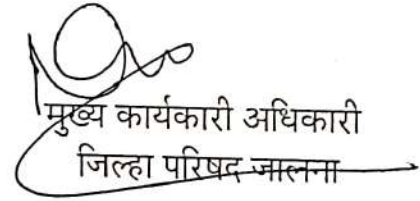 मुख्य कार्यकारी अधिकारी
जिल्हा परिषद जालना